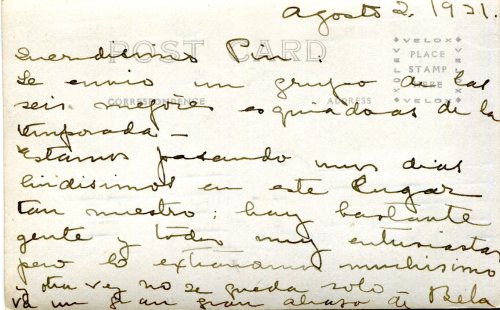 Agosto 2. 1931.
Queridísimo Pin:
POST CARD
Le envio un grupo de las
seis mejores esquiadoras de la
CORRESPONDENCE
ADDRESS
VELOX
PLACE
STAMP
HERE
VELOX
temporada —
Estamos pasando unos dias
lindisimos en este lugar
tan nuestro; hay bastante
gente y todos muy entusiastas
pero lo extrañamos muchisimo
y otra vez no se queda solo
va un gran gran abrazo de Bela